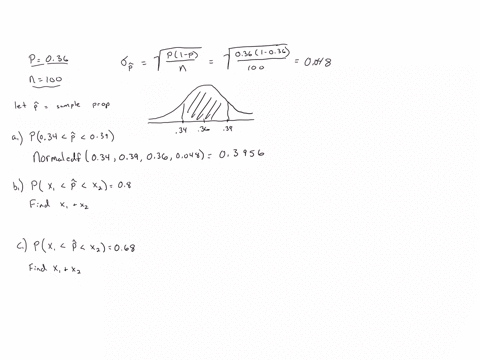 P = 0.36
n = 100
σp̂ = √(p(1-p)/n) = √(0.36(1-0.36)/100) = 0.048
let p̂ = sample prop
.34 .36 .39
a.) P(0.34 < p̂ < 0.39)
Normalcdf(0.34, 0.39, 0.36, 0.048) = 0.3956
b.) P(x₁ < p̂ < x₂) = 0.8
Find x₁ + x₂
c.) P(x₁ < p̂ < x₂) = 0.68
Find x₁ + x₂